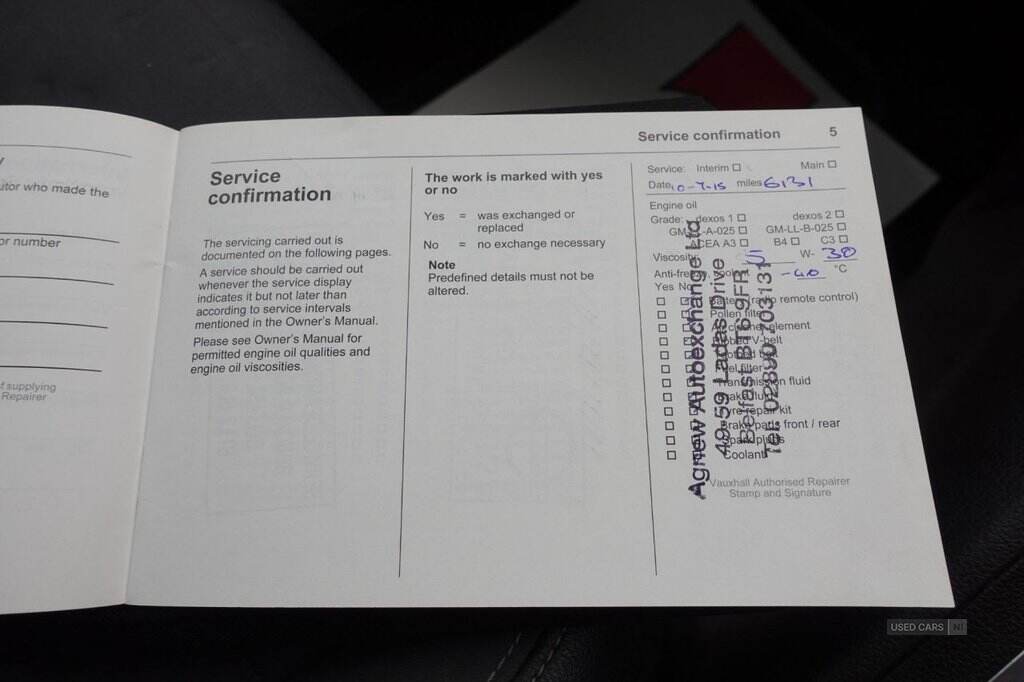 y
utor who made the
or number
f supplying
Repairer
Service confirmation 5
Service
confirmation
The servicing carried out is
documented on the following pages.
A service should be carried out
whenever the service display
indicates it but not later than
according to service intervals
mentioned in the Owner's Manual.
Please see Owner's Manual for
permitted engine oil qualities and
engine oil viscosities.
The work is marked with yes
or no
Yes = was exchanged or
replaced
No = no exchange necessary
Note
Predefined details must not be
altered.
Service: Interim Main
Date 10-7-15 miles 6131
Engine oil
Grade: dexos 1 dexos 2
GM-LL-A-025 GM-LL-B-025
ACEA A3 B4 C3
Viscosity: 5 W- 30
Anti-freeze, coolant -40 °C
Yes No
Battery (radio remote control)
Pollen filter
Air cleaner element
Ribbed V-belt
Toothed belt
Fuel filter
Transmission fluid
Brake fluid
Tyre repair kit
Brake pads front / rear
Spark plugs
Coolant
Agnew Autoexchange Ltd
49-59 Ladas Drive
Belfast BT6 9FR
Tel: 02890 703131
Vauxhall Authorised Repairer
Stamp and Signature
USED CARS NI